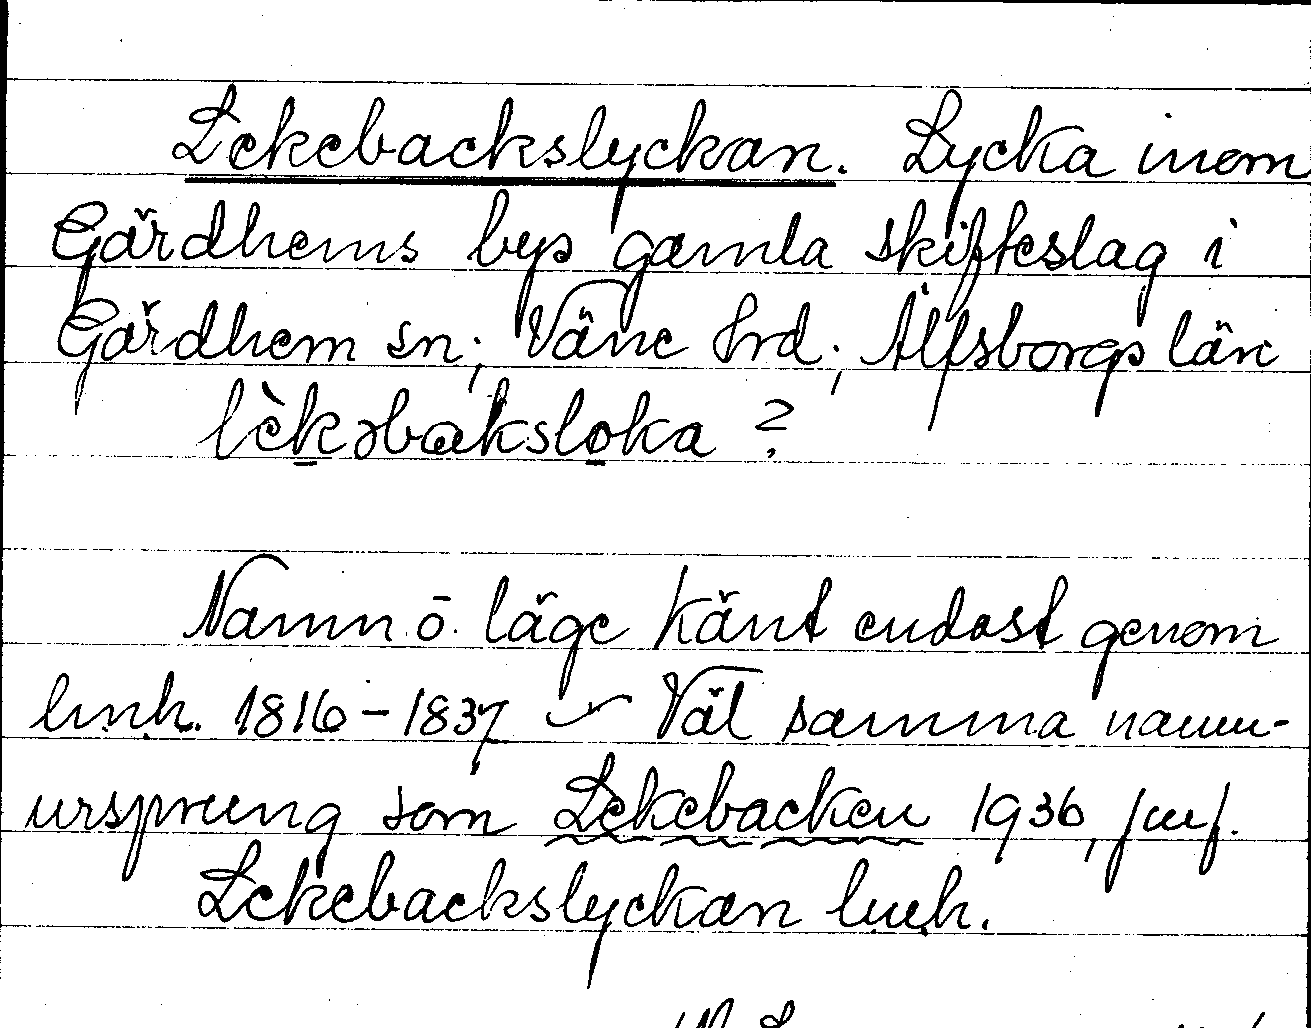 Lekebackslyckan. Lycka inom
Gärdhems bys gamla skifteslag i
Gärdhem sn; Väne hrd; Älfsborgs län
lèkəbaksloka ?
Namn o. läge känt endast genom
lmh. 1816-1837 Väl samma namn-
ursprung som Lekebacken 1936, jmf.
Lekebackslyckan lmh.